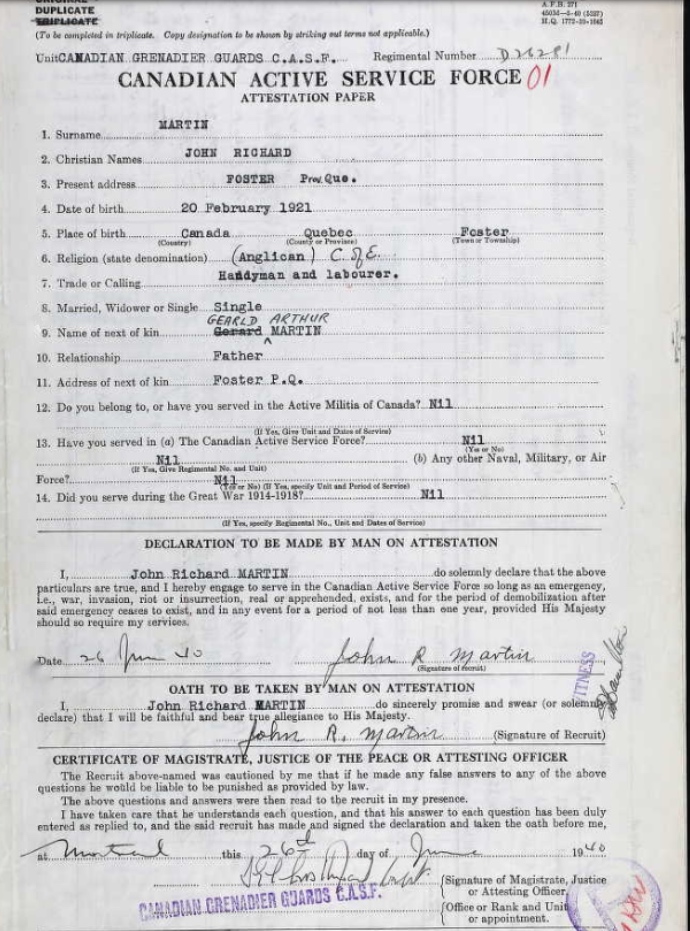 ORIGINAL
DUPLICATE
TRIPLICATE
A.F.B. 271
H.Q. 1772-39-1642
(To be completed in triplicate. Copy designation to be shown by striking out terms not applicable.)
Unit CANADIAN GRENADIER GUARDS C.A.S.F. Regimental Number D26281
CANADIAN ACTIVE SERVICE FORCE 01
ATTESTATION PAPER
1. Surname MARTIN
2. Christian Names JOHN RICHARD
3. Present address FOSTER Prov. Que.
4. Date of birth 20 February 1921
5. Place of birth Canada Quebec Foster
(Country) (County or Province) (Town or Township)
6. Religion (state denomination) (Anglican) C. of E.
7. Trade or Calling Handyman and labourer.
8. Married, Widower or Single Single
GEARLD ARTHUR
9. Name of next of kin Gerard MARTIN
10. Relationship Father
11. Address of next of kin Foster P.Q.
12. Do you belong to, or have you served in the Active Militia of Canada? Nil
(If Yes, Give Unit and Dates of Service)
13. Have you served in (a) The Canadian Active Service Force? Nil
(Yes or No)
Nil (b) Any other Naval, Military, or Air
(If Yes, Give Regimental No. and Unit)
Force? Nil
(Yes or No) (If Yes, specify Unit and Period of Service)
14. Did you serve during the Great War 1914-1918? Nil
(If Yes, specify Regimental No., Unit and Dates of Service)
DECLARATION TO BE MADE BY MAN ON ATTESTATION
I, John Richard MARTIN do solemnly declare that the above
particulars are true, and I hereby engage to serve in the Canadian Active Service Force so long as an emergency,
i.e., war, invasion, riot or insurrection, real or apprehended, exists, and for the period of demobilization after
said emergency ceases to exist, and in any event for a period of not less than one year, provided His Majesty
should so require my services.
Date 26 June 40 John R Martin
(Signature of recruit)
WITNESS
OATH TO BE TAKEN BY MAN ON ATTESTATION
I, John Richard MARTIN do sincerely promise and swear (or solemnly
declare) that I will be faithful and bear true allegiance to His Majesty.
John R. Martin (Signature of Recruit)
CERTIFICATE OF MAGISTRATE, JUSTICE OF THE PEACE OR ATTESTING OFFICER
The Recruit above-named was cautioned by me that if he made any false answers to any of the above
questions he would be liable to be punished as provided by law.
The above questions and answers were then read to the recruit in my presence.
I have taken care that he understands each question, and that his answer to each question has been duly
entered as replied to, and the said recruit has made and signed the declaration and taken the oath before me,
at Montreal this 26th day of June 1940
(Signature of Magistrate, Justice
or Attesting Officer,
CANADIAN GRENADIER GUARDS C.A.S.F.
(Office or Rank and Unit
or appointment.